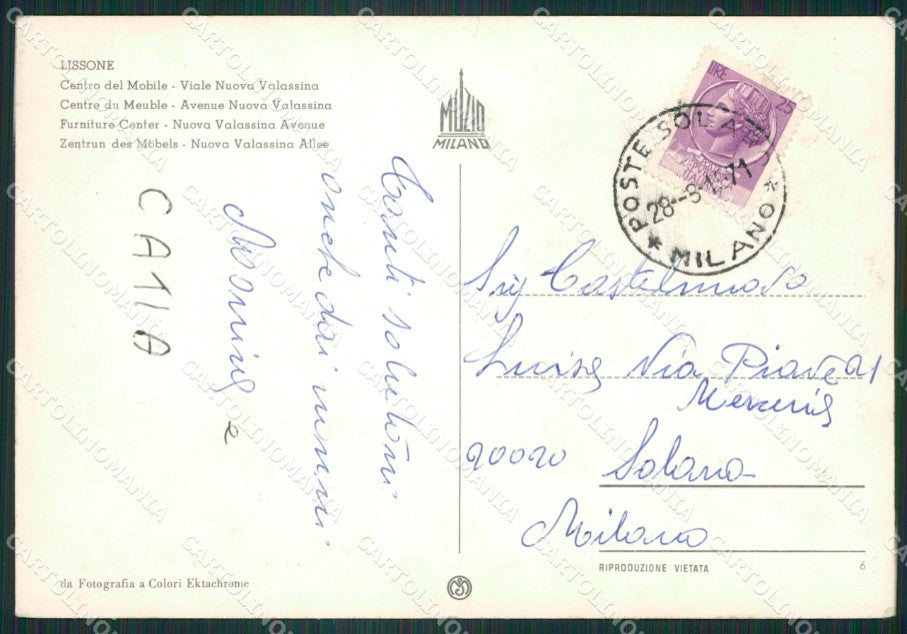 LISSONE
Centro del Mobile - Viale Nuova Valassina
Centre du Meuble - Avenue Nuova Valassina
Furniture Center - Nuova Valassina Avenue
Zentrun des Möbels - Nuova Valassina Allee
MUZIO
MILANO
LIRE 25
POSTE SOLARO
28--8-1971
* MILANO *
Tanti saluti
anche dai nonni
e
CA11A
Sig Castelnuovo
Luisa Via Piave 21
Merceria
20020 Solaro
Milano
RIPRODUZIONE VIETATA
6
da Fotografia a Colori Ektachrome
CARTOLINOMANIA